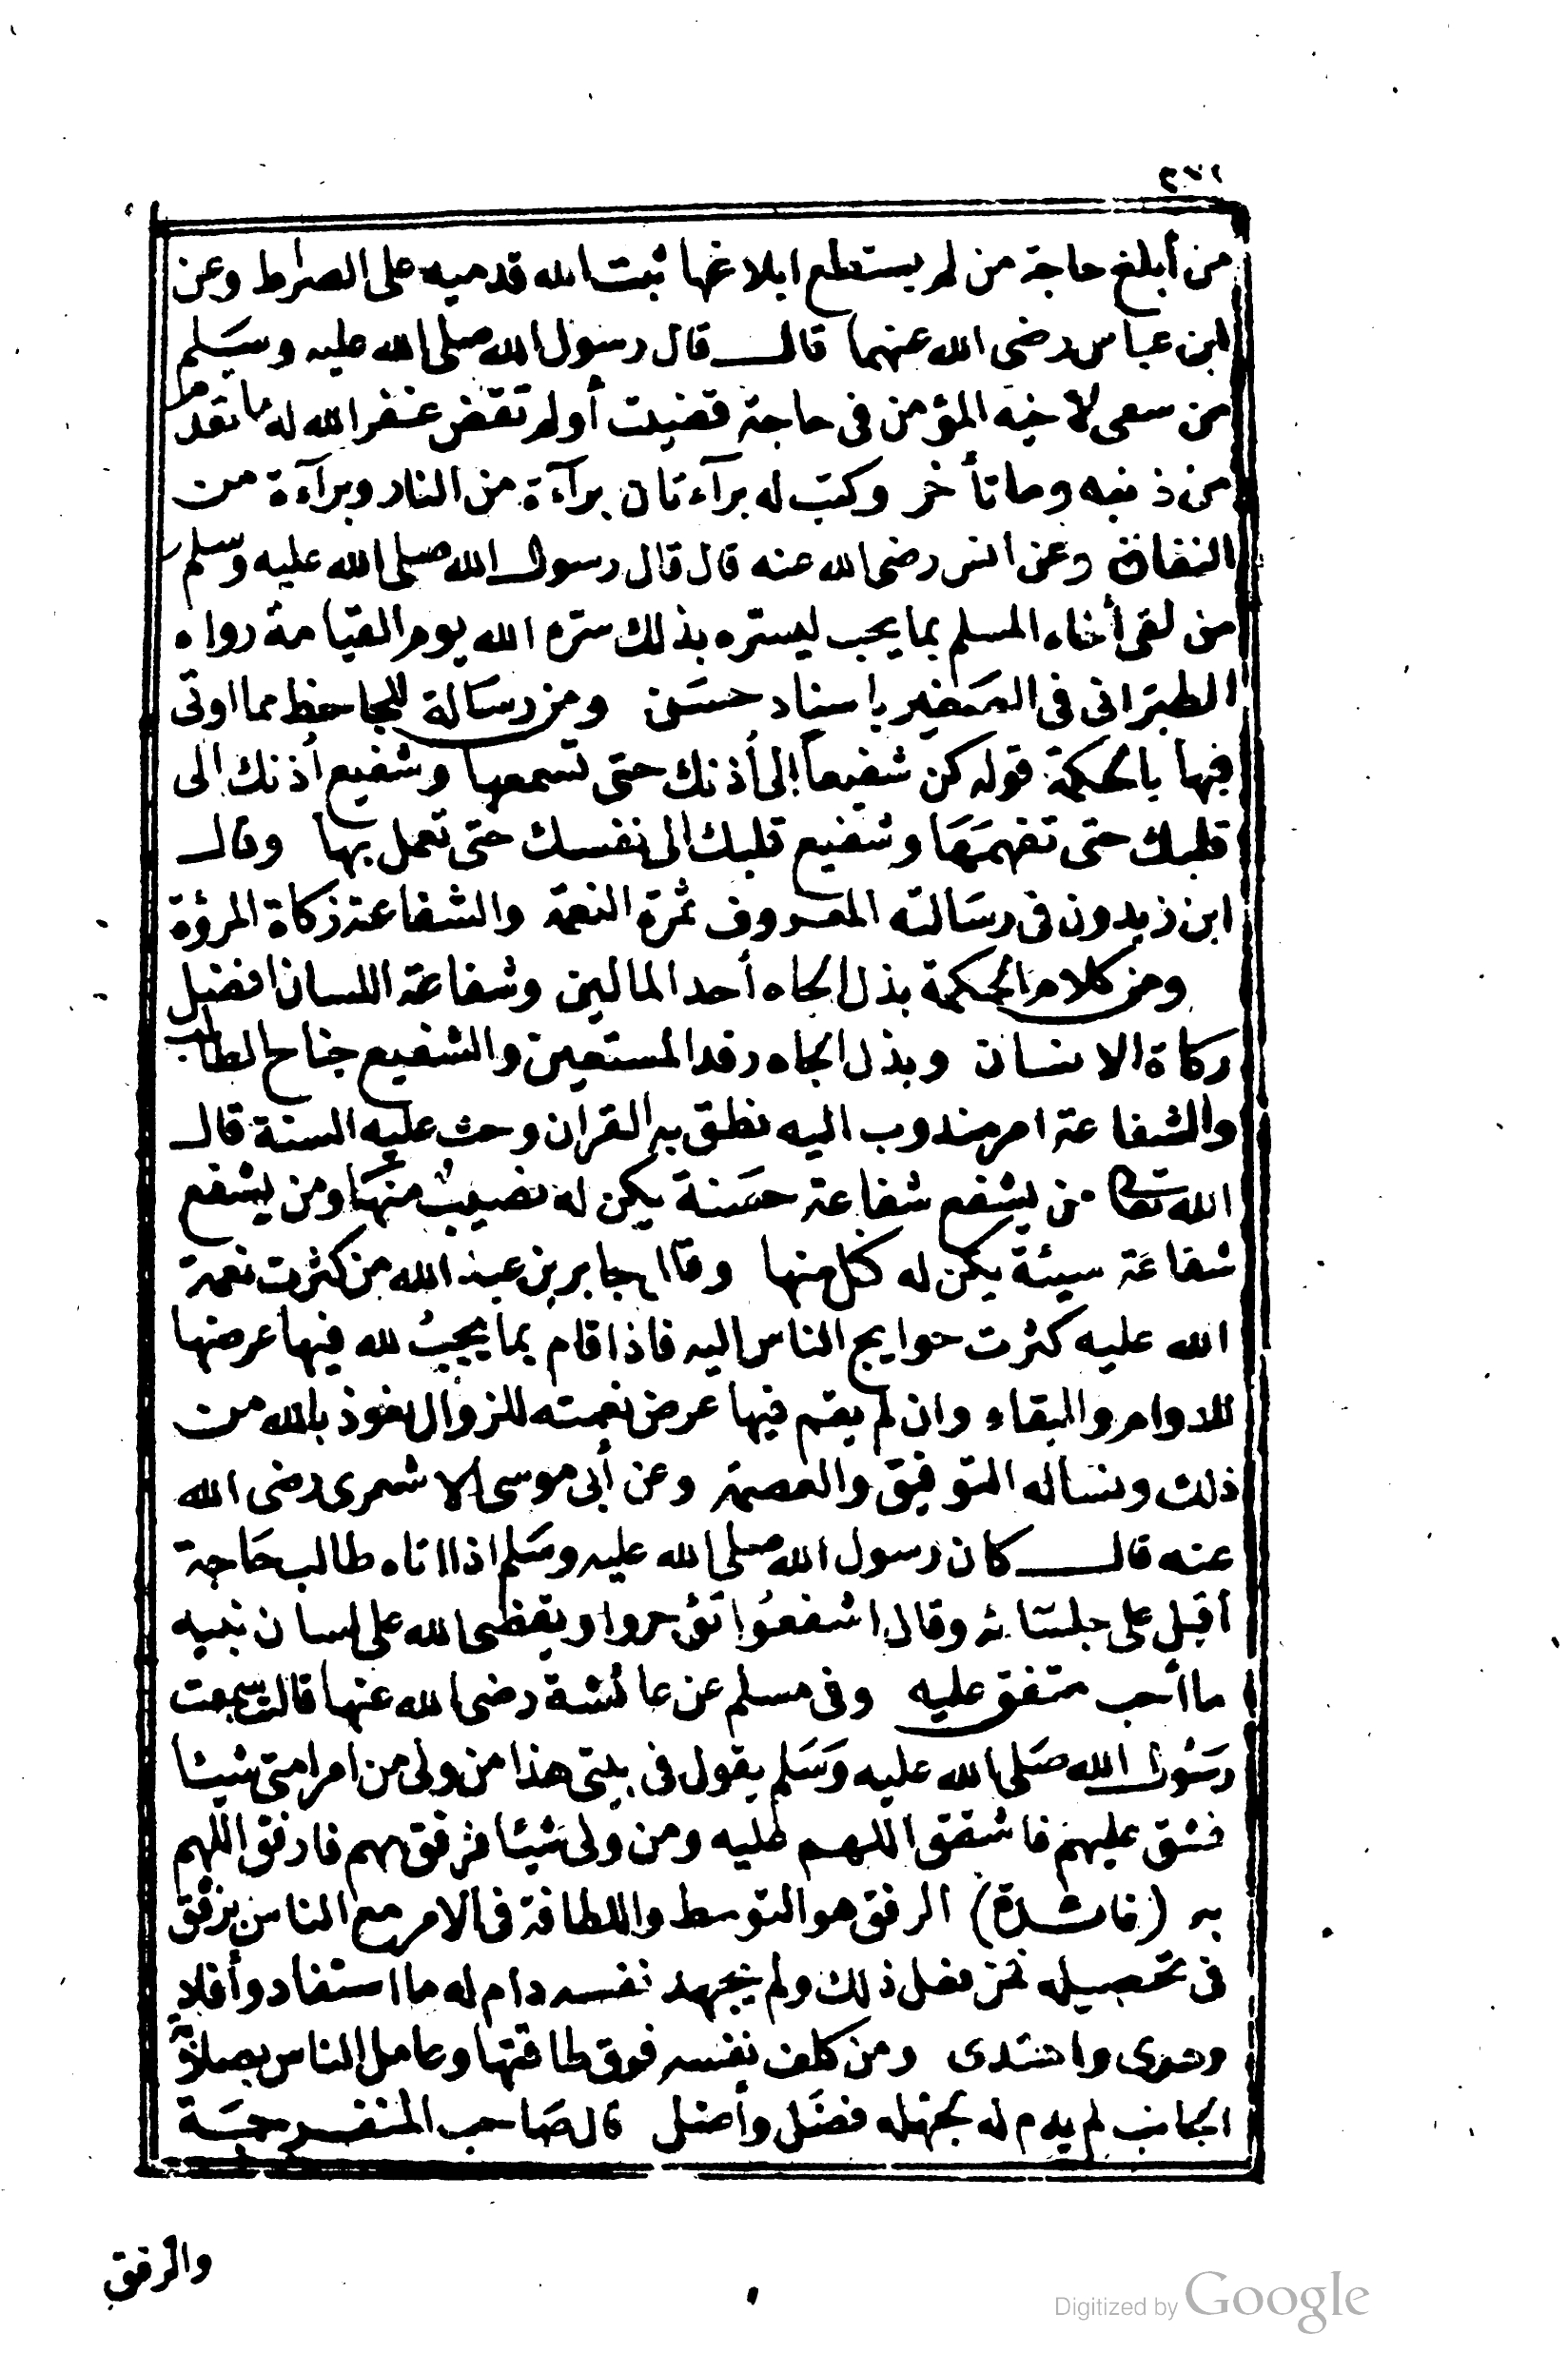 من أبلغ حاجة من لم يستطع ابلاغها ثبت الله قدميه على الصراط وعن
ابن عباس رضى الله عنهما قال قال رسول الله صلى الله عليه وسلم
من سعى لاخيه المؤمن فى حاجة قضيت أو لم تقض غفر الله له ما تقدم
من ذنبه وما تأخر وكتب له برآءتان برآءة من النار وبرآءة من
النفاق وعن انس رضى الله عنه قال قال رسول الله صلى الله عليه وسلم
من لقى أخاه المسلم بما يحب ليستره بذلك ستره الله يوم القيامة رواه
الطبرانى فى الصغير باسناد حسن ومن رسالة للجاحظ مما اوتى
فيها بالحكمة قوله كن شفيعا إلى أذنك حتى تسمعها وشفيع أذنك الى
قلبك حتى تفهمها وشفيع قلبك الى نفسك حتى تعمل بها وقال
ابن زيدون فى رسالته المعروف ثمرة النعمة والشفاعة زكاة المرؤة
ومن كلام الحكمة بذل الجاه أحد المالين وشفاعة اللسان افضل
زكاة الانسان وبذل الجاه رفد المستعين والشفيع جناح الطالب
والشفاعة امر مندوب اليه نطق به القران وحث عليه السنة قال
الله تعالى من يشفع شفاعة حسنة يكن له نصيب منها ومن يشفع
شفاعة سيئة يكن له كفل منها وقال جابر بن عبد الله من كثرت نعمة
الله عليه كثرت حوايج الناس اليه فاذا قام بما يجب لله فيها عرضها
للدوام والبقاء وان لم يقم فيها عرض نعمته للزوال نعوذ بالله من
ذلك ونساله التوفيق والعصمة وعن أبى موسى الاشعرى رضى الله
عنه قال كان رسول الله صلى الله عليه وسلم اذا اتاه طالب حاجة
أقبل على جلسائه وقال اشفعوا تؤجروا ويقضى الله على لسان نبيه
ما أحب متفق عليه وفى مسلم عن عائشة رضى الله عنها قالت سمعت
رسول الله صلى الله عليه وسلم يقول فى بيتى هذا من ولى من امر امتى شيئا
فشق عليهم فاشقق اللهم عليه ومن ولى شيئا فرفق بهم فارفق اللهم
به (فائدة) الرفق هو التوسط واللطافة فى الامر مع الناس برفق
فى تحصيله فمن فعل ذلك ولم يجهد نفسه دام له ما استفاد وأفاد
وهدى واهتدى ومن كلف نفسه فوق طاقتها وعامل الناس بصلابة
الجانب لم يدم له بجهله فضل وأضل قال صاحب المنفرجة
والرفق
Digitized by Google